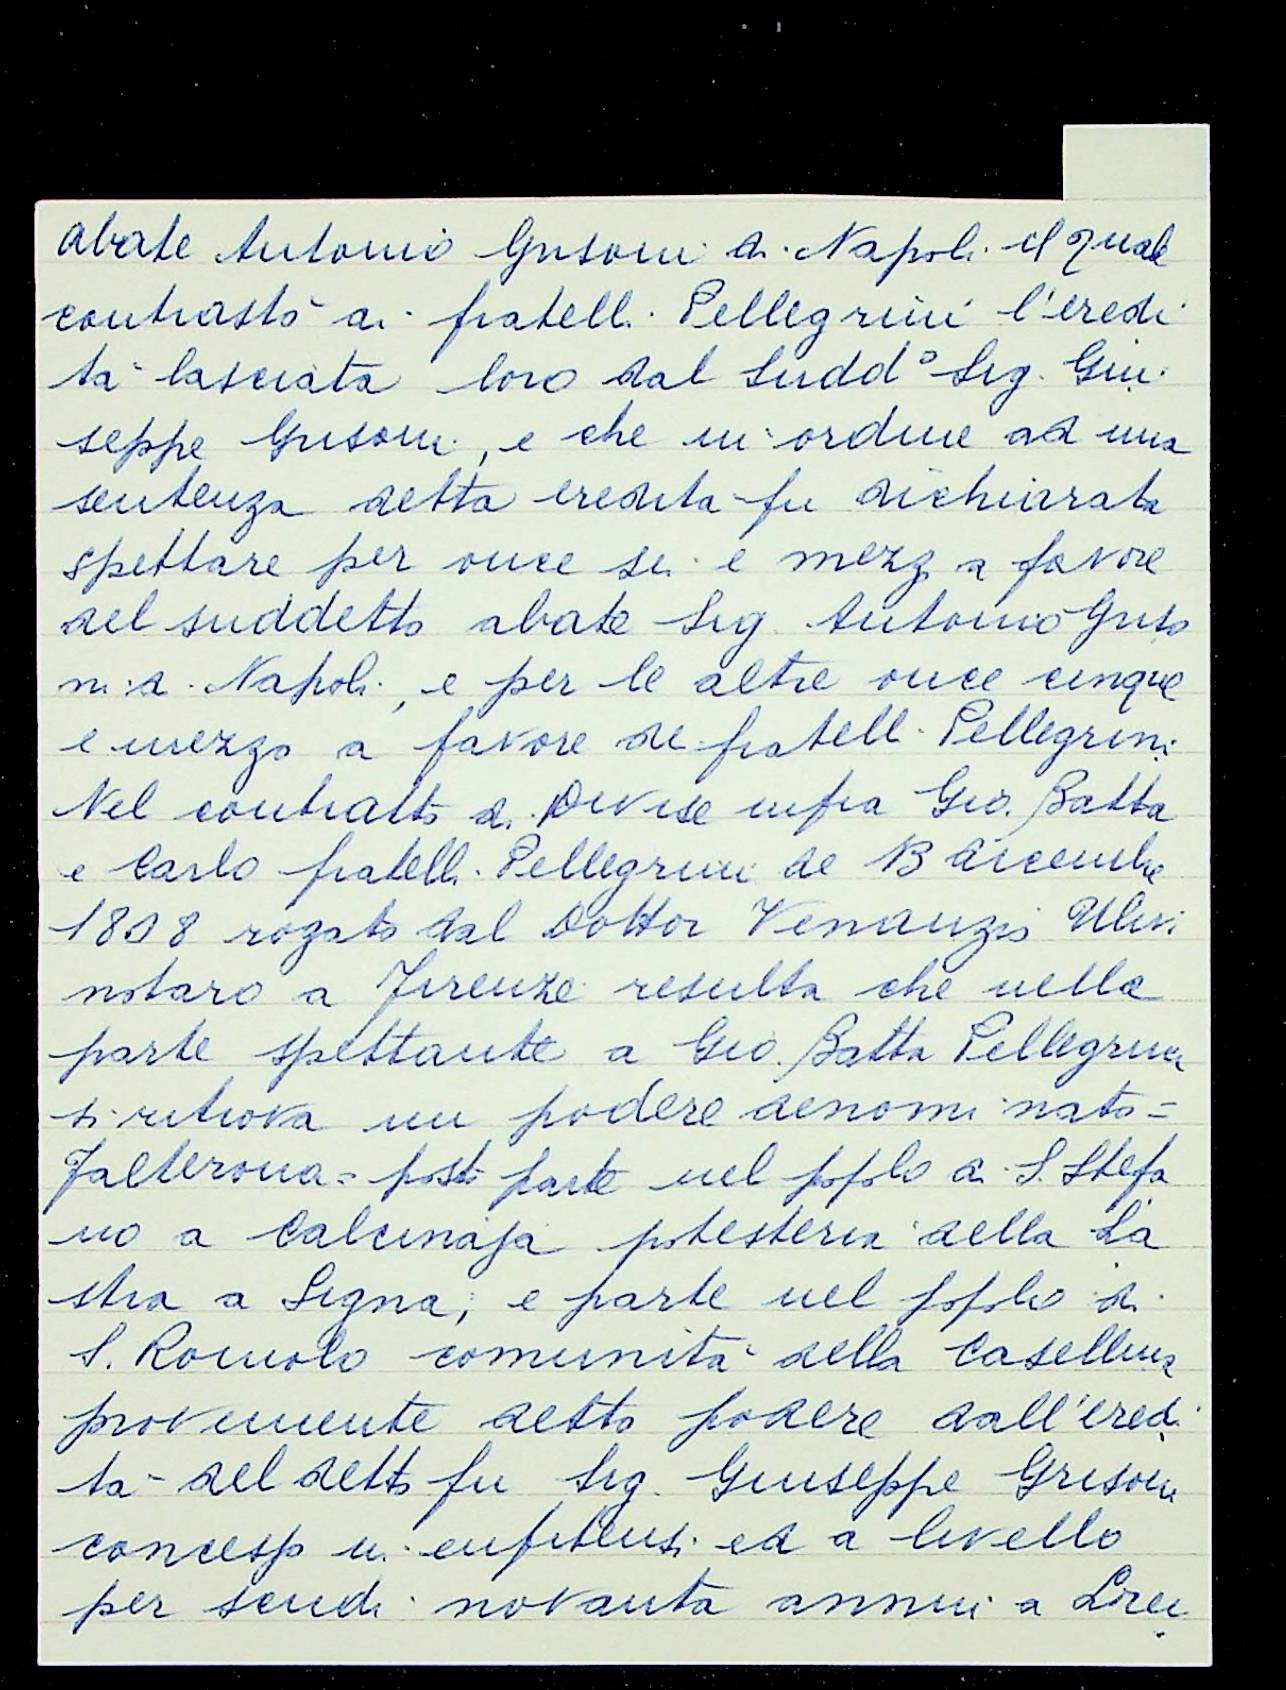 abate Antonio Grisoni di Napoli il quale
contrastò ai fratelli Pellegrini l'eredi
tà lasciata loro dal Sudd° Sig. Giu
seppe Grisoni, e che in ordine ad una
sentenza detta eredità fu dichiarata
spettare per once sei e mezz a favore
del suddetto abate Sig. Antonio Griso
ni di Napoli, e per le altre once cinque
e mezzo a favore dei fratelli Pellegrini
Nel contratto di Divise infra Gio. Batta
e Carlo fratelli Pellegrini de 13 dicembre
1808 rogato dal Dottor Venanzio Ulivi
notaro a Firenze resulta che nella
parte spettante a Gio. Batta Pellegrini
si ritrova un podere denominato =
Falterona = posto parte nel popolo di S. Stefa
no a Calcinaja potesteria della La
stra a Signa; e parte nel popolo di
S. Romolo comunità della Casellina
proveniente detto podere dall'eredi
tà del detto fu Sig. Giuseppe Grisoni
concesso in enfiteusi ed a livello
per scudi novanta annui a Lren